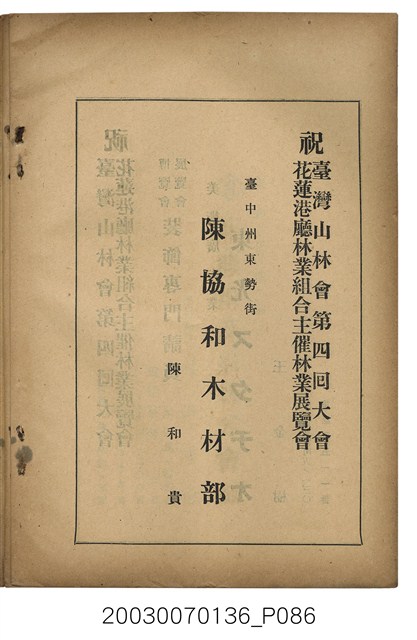 祝
臺灣山林會第四回大會
花蓮港廳林業組合主催林業展覽會
臺中州東勢街
陳協和木材部
陳和貴
20030070136_P086